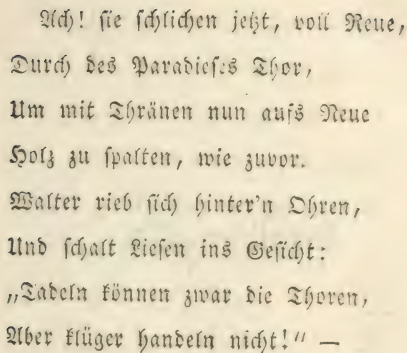 Ach! sie schlichen jetzt, voll Reue,
Durch des Paradieses Thor,
Um mit Thränen nun aufs Neue
Holz zu spalten, wie zuvor.
Walter rieb sich hinter'n Ohren,
Und schalt Liesen ins Gesicht:
„Tadeln können zwar die Thoren,
Aber klüger handeln nicht!“ —